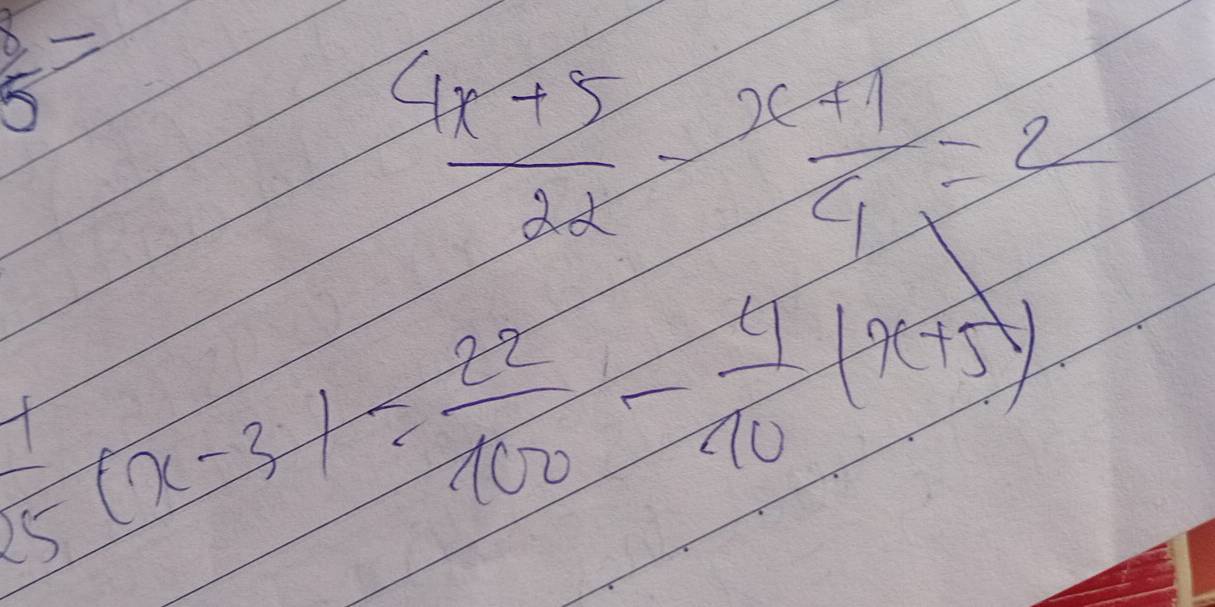 8/5 =
(4x+5)/22 - (x+1)/4 = 2
1/25 (x-3) = 22/100 - 4/10 (x+5)